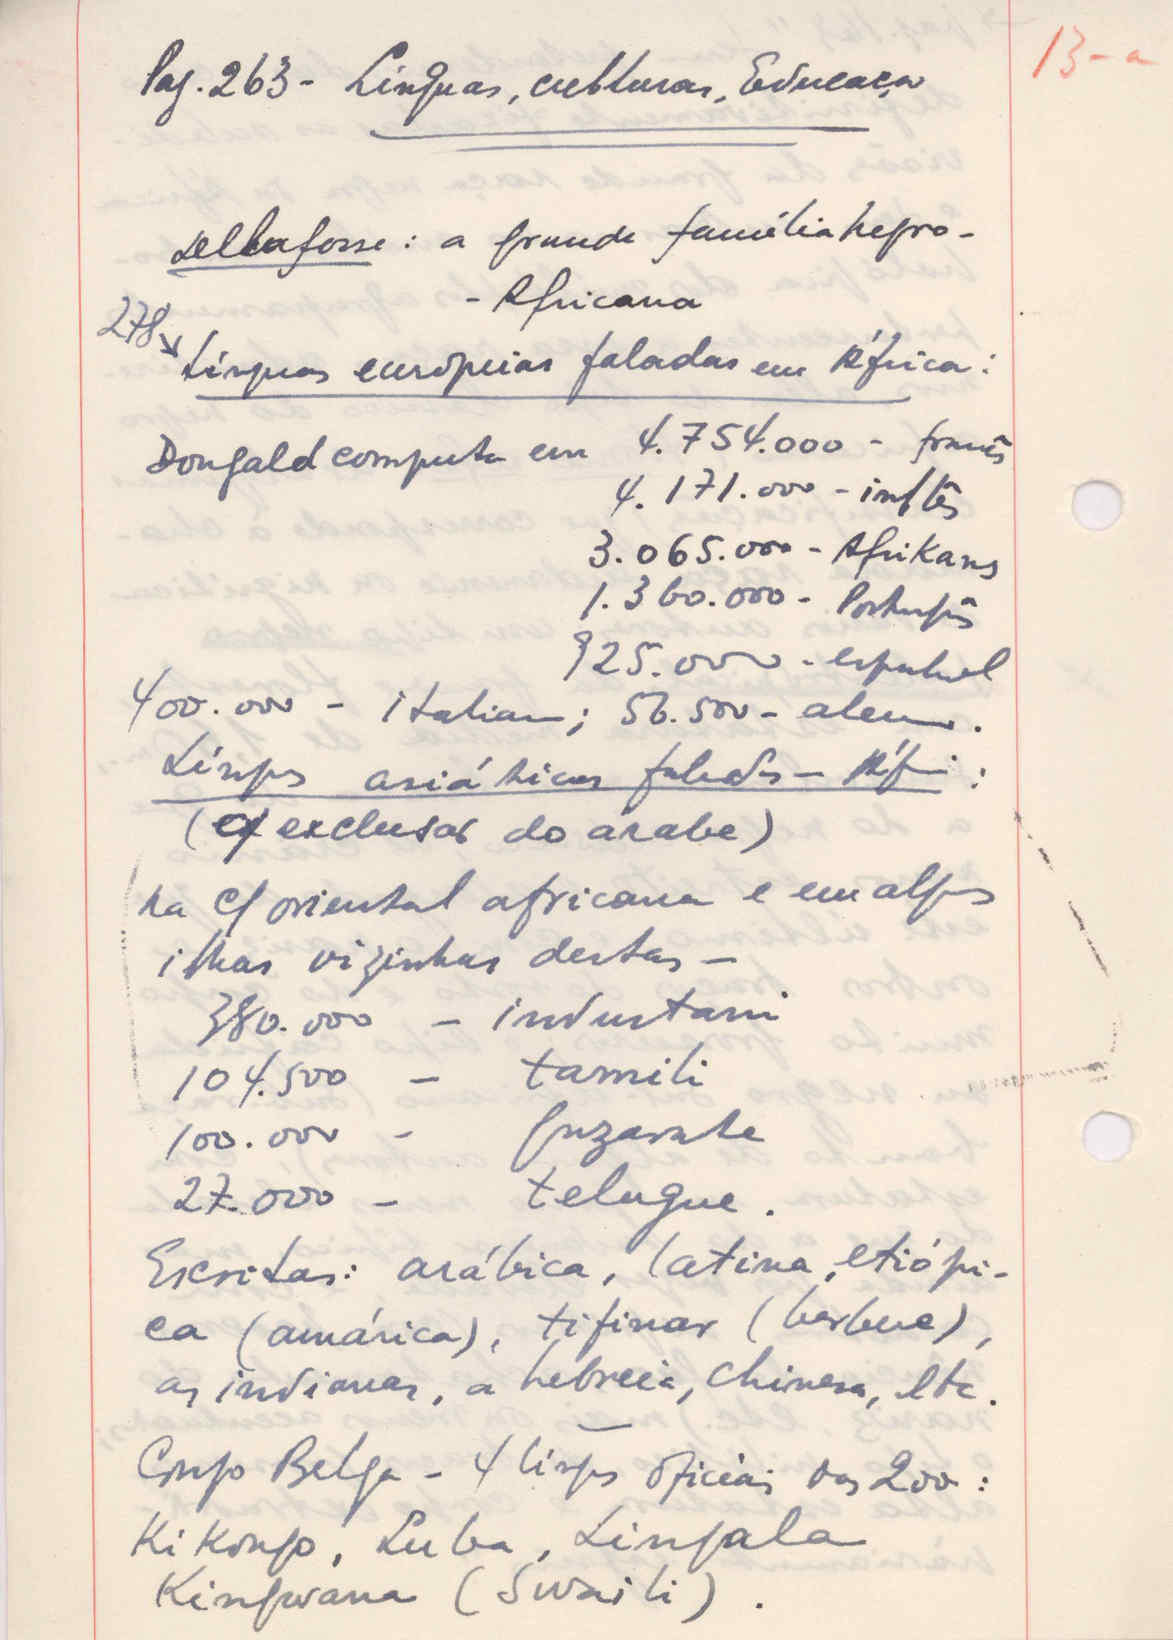 13-a
Pag. 263 - Línguas, culturas, Educação
Dellafosse: a grande família negro-
-Africana
278
Línguas européias faladas em África:
Dougald computa em 4.754.000 - francês
4.171.000 - inglês
3.065.000 - Afrikans
1.360.000 - Português
925.000 - espanhol
400.000 - italiano; 56.500 - alemão.
Línguas asiáticas faladas - Áfri:
(exclusos do árabe)
na oriental africana e em algumas
ilhas vizinhas destas -
380.000 - industani
104.500 - tamili
100.000 - guzarate
27.000 - telugue.
Escritas: arábica, latina, etiópi-
ca (amárica), tifinar (berbere),
as indianas, a hebreia, chinesa, etc.
Congo Belga - 4 línguas oficiais das 200:
Kikongo, Luba, Lingala
Kingwana (Swaili).